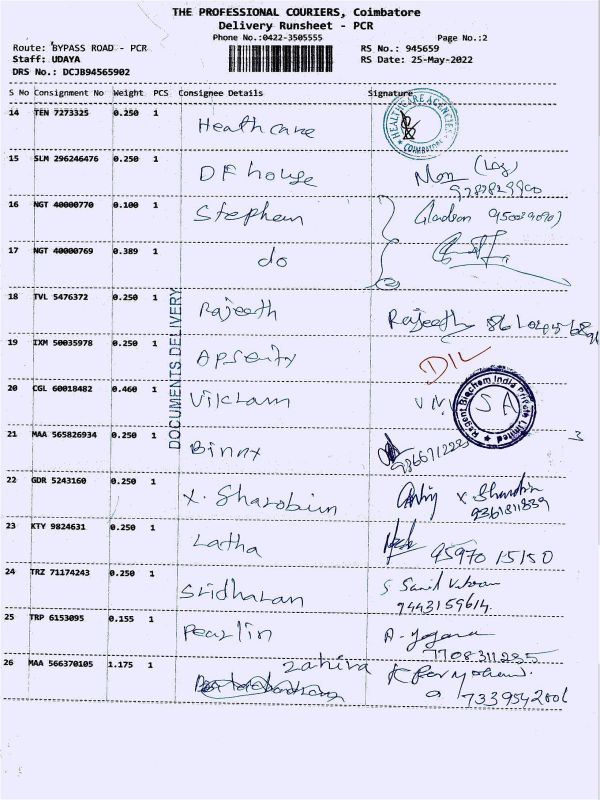 THE PROFESSIONAL COURIERS, Coimbatore
Delivery Runsheet - PCR
Phone No.:0422-3505555 Page No.:2
Route: BYPASS ROAD - PCR RS No.: 945659
Staff: UDAYA RS Date: 25-May-2022
DRS No.: DCJB94565902
S No Consignment No Weight PCS Consignee Details Signature
14 TEN 7273325 0.250 1 Heathcare
HEALTHCARE AGENCIES COIMBATORE
15 SLM 296246476 0.250 1 DF house
16 NGT 40000770 0.100 1 Stephen
17 NGT 40000769 0.389 1 do
18 TVL 5476372 0.250 1 Rajeeth Rajeeth
DOCUMENTS DELIVERY
19 IXM 50035978 0.250 1 DIL
20 CGL 60018482 0.460 1 Vikram
Regent Biochem India Private Limited
SA
21 MAA 565826934 0.250 1 Binny
3
22 GDR 5243160 0.250 1
9361811839
23 KTY 9824631 0.250 1 Latha 95970 15150
24 TRZ 71174243 0.250 1 Sridharan
9443159614
25 TRP 6153095 0.155 1 Pearlin
7708311235
26 MAA 566370105 1.175 1 Zahira